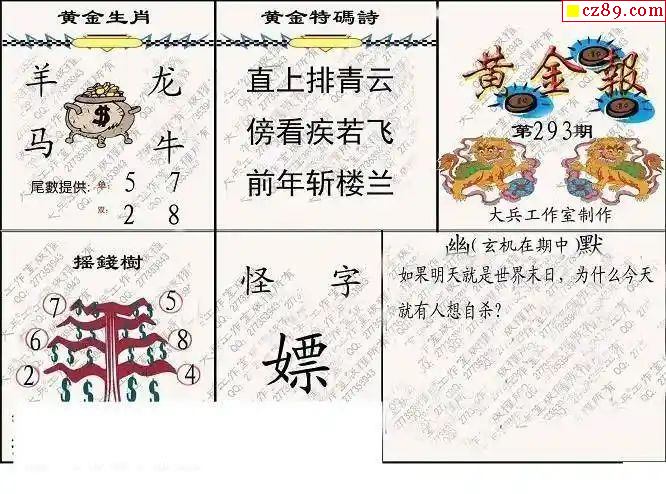 cz89.com
黄金生肖
羊 龙
马 牛
$
尾數提供: 单: 5 7
双: 2 8
黄金特碼詩
直上排青云
傍看疾若飞
前年斩楼兰
黄金報
第293期
大兵工作室制作
摇錢樹
7 5
6 8
2 4
$ $ $ $
怪 字
嫖
幽(玄机在期中)默
如果明天就是世界末日，为什么今天
就有人想自杀?